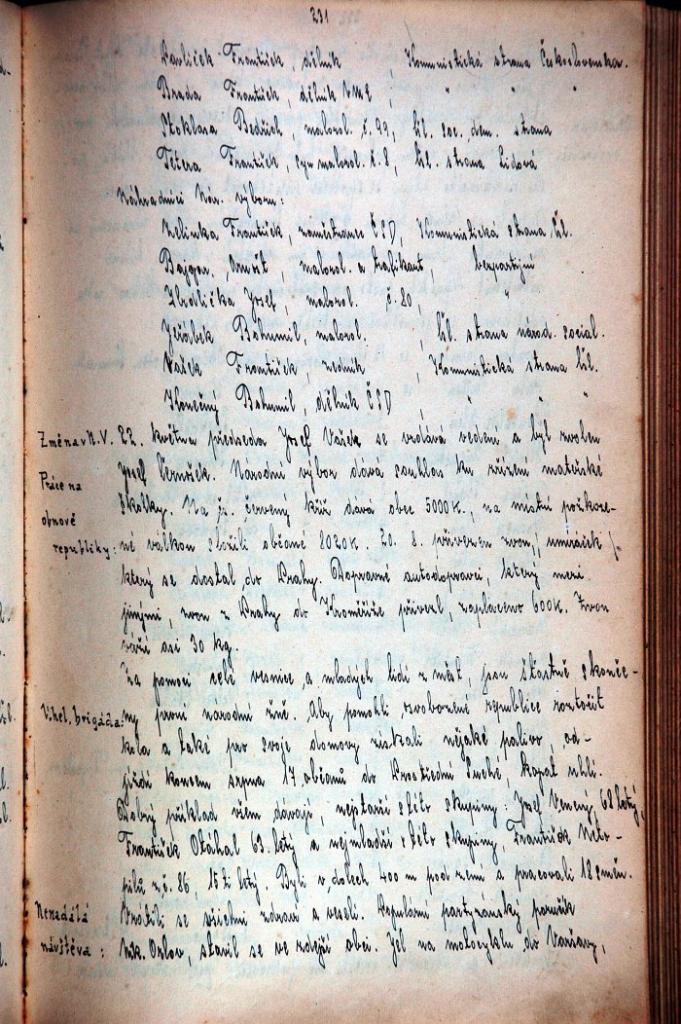 231
Pavlíček František, dělník , Komunistická strana Československa.
Brada František, dělník , " " "
Stoklasa Bedřich, malorol. č. 99, čsl. soc. dem. strana
Tetera František, syn malorol. č. 8, čsl. strana lidová
Náhradníci Nár. výboru:
Zelinka František, zaměstnanec ČSD, Komunistická strana čsl.
Bajgar, , malorol. a trafikant, bezpartijní
Hrdlička Josef, malorol. č. 80, "
Jeřábek Bohumil, malorol. , čsl. strana národ. social.
Vašek František, zedník , Komunistická strana čsl.
Konečný Bohumil, dělník ČSD , " " "
Změna v N.V. 22. května předseda Josef Vašek se vzdává vedení a byl zvolen
Josef Černošek. Národní výbor dává souhlas ku zřízení mateřské
Práce na
školky. Na čs. červený kříž dává obec 5000 K., na místní poškoze-
obnově
republiky: né válkou složili občané 8020 K. 20. 8. přivezen zvon, umíráček
který se dostal do Prahy. autodopravci, který mezi
jinými, zvon z Prahy do Kroměříže přivezl, zaplaceno 600 K. Zvon
váží asi 30 kg.
Za pomoci celé vesnice a mladých lidí z měst, jsou šťastně skonče-
Uhel. brigáda: ny první národní žně. Aby pomohli osvobozené republice roztočit
kola a také pro svoje domovy získali nějaké palivo, od-
jíždí koncem srpna 17 občanů do Prostřední Suché, kopat uhlí.
Dobrý příklad všem dávají, nejstarší z této skupiny: Josef 68 letý,
František Otáhal 63. letý a nejmladší z této skupiny, František Neto-
pilů z č. 86. 15 ti letý. Byli v dolech 400 m pod zemí a pracovali 18 směn.
Nenadálá Vrátili se všichni zdraví a veselí. Populární partyzánský poručík
návštěva: Nik. Orlov, stavil se ve zdejší obci. Jel na motocyklu do Varšavy,